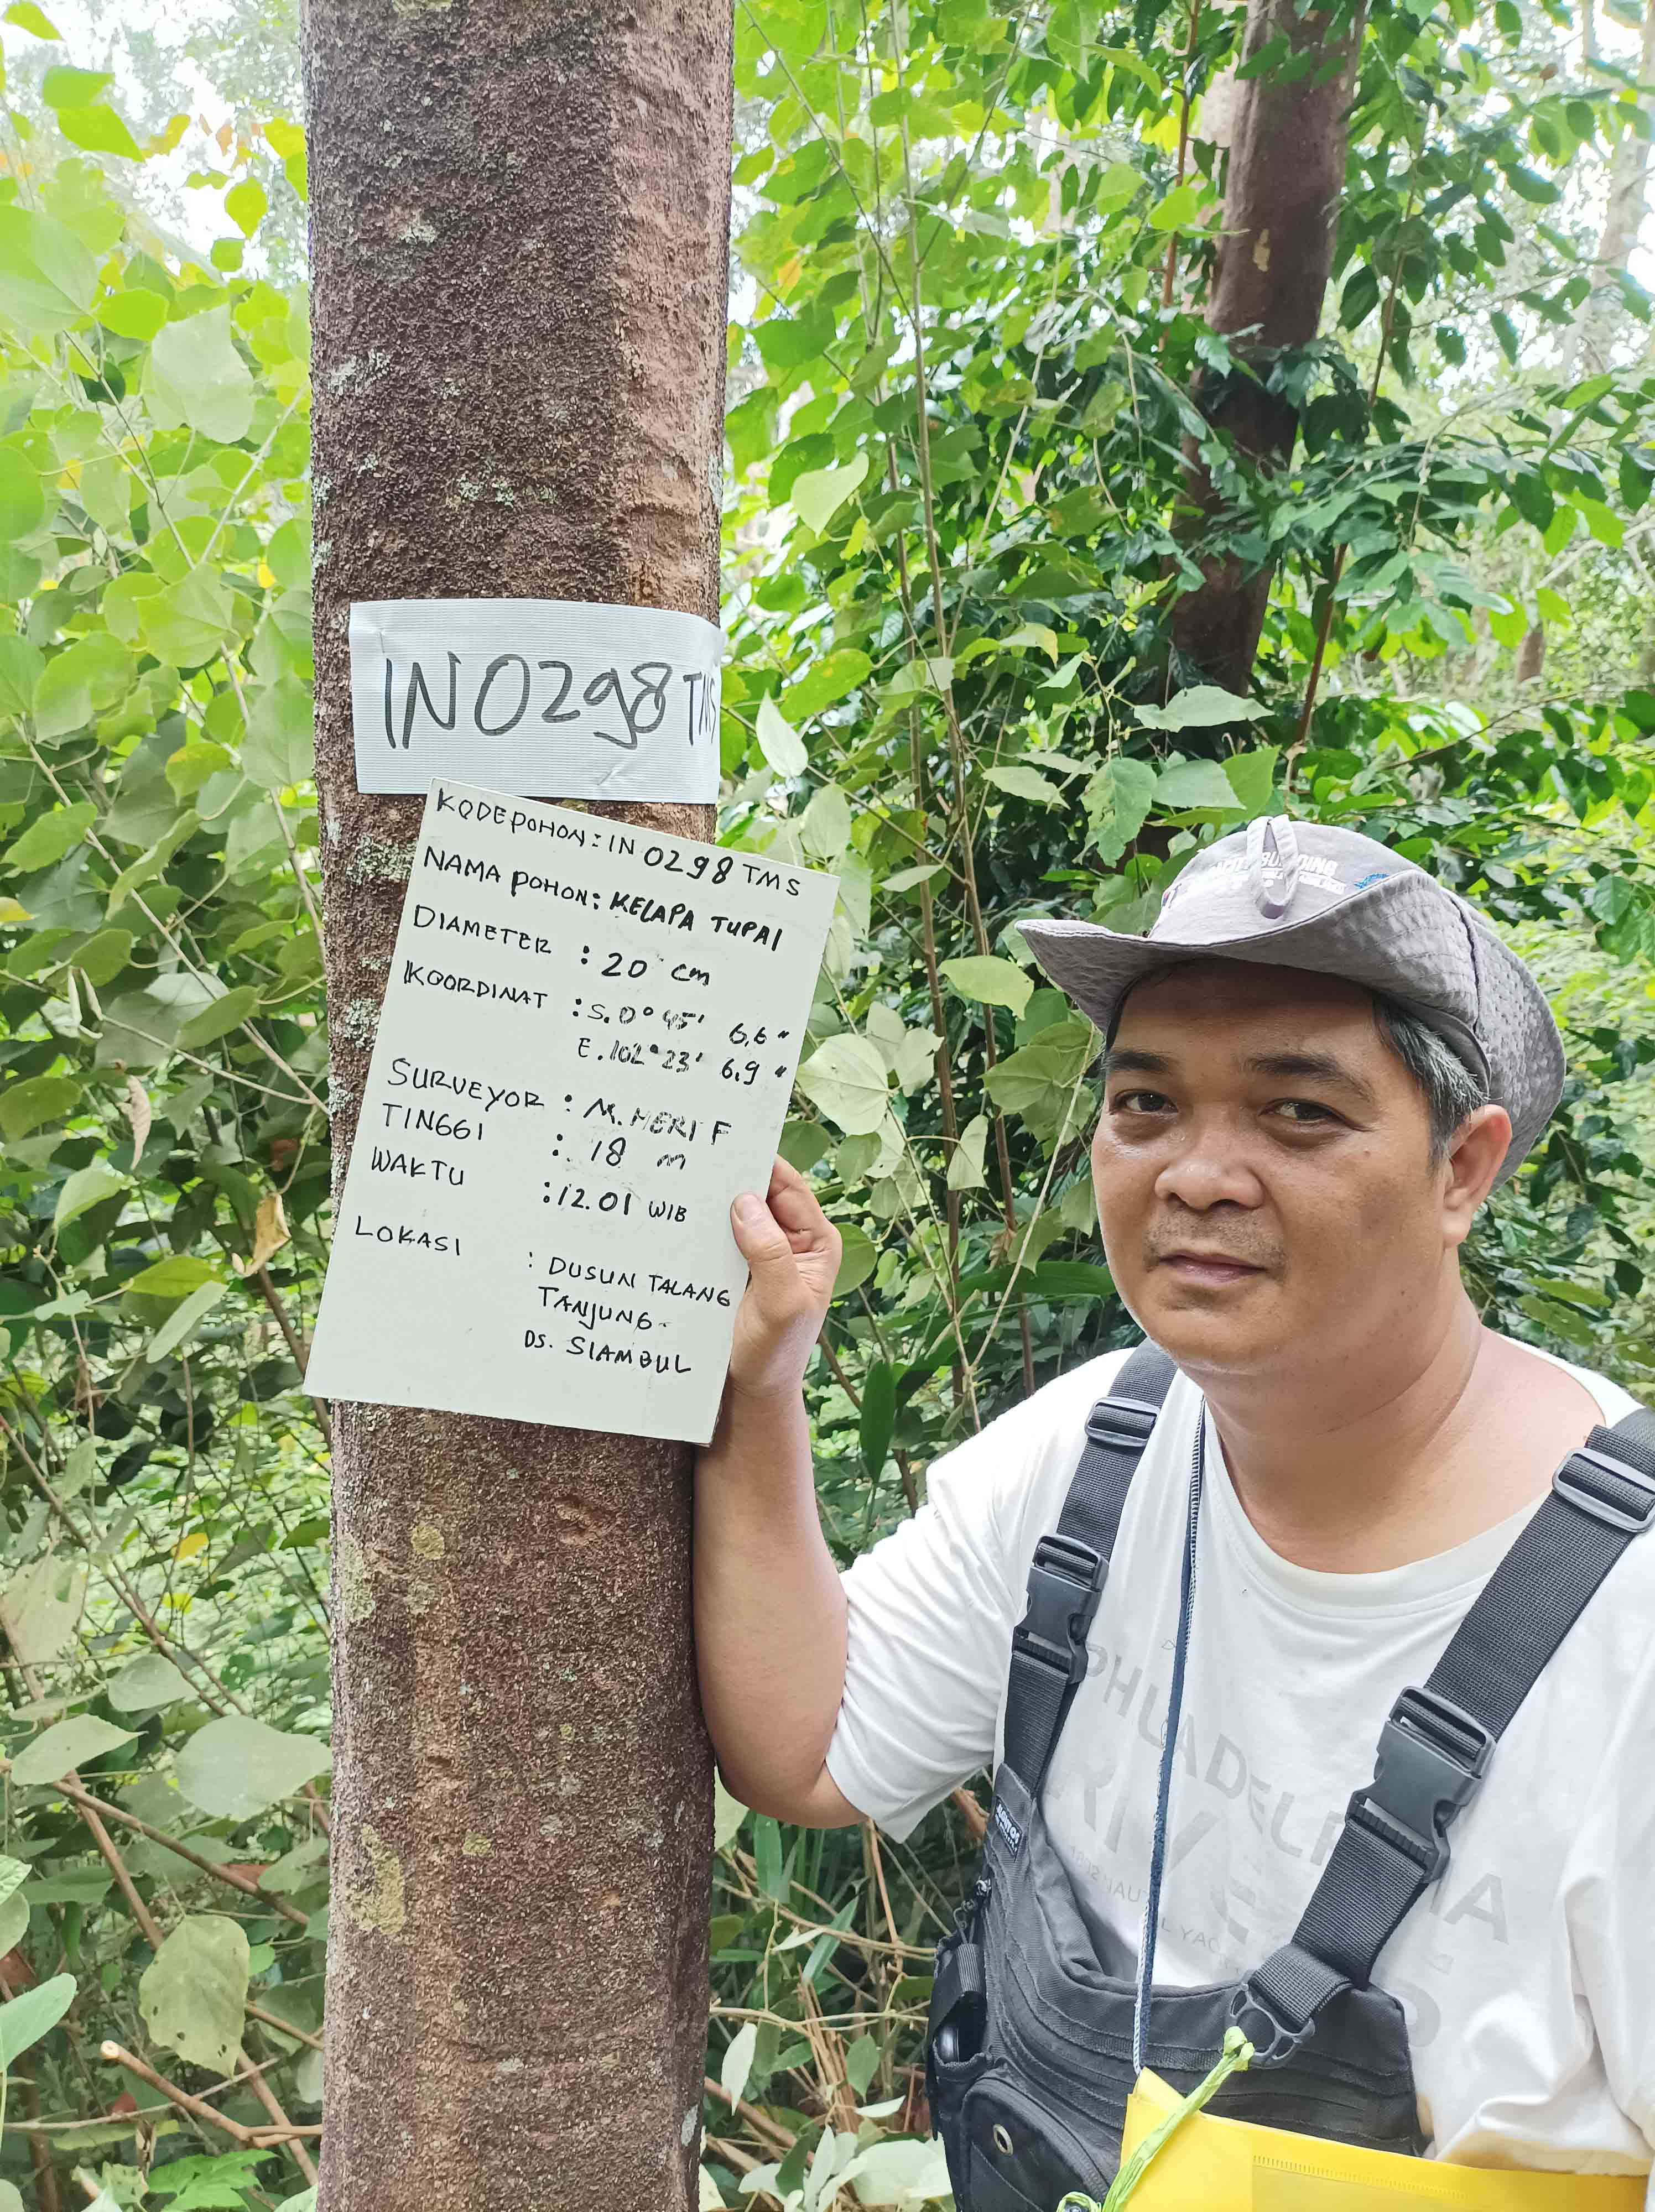 IN 0298 TMS
KODE POHON : IN 0298 TMS
NAMA POHON : KELAPA TUPAI
DIAMETER : 20 cm
KOORDINAT : S. 0° 45' 6,6"
E. 102° 23' 6,9"
SURVEYOR : M. HERI F
TINGGI : 18 m
WAKTU : 12.01 WIB
LOKASI : DUSUN TALANG
TANJUNG
DS. SIAMBUL